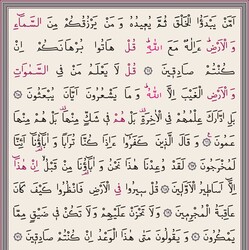 أَمَّن يَبْدَؤُا الْخَلْقَ ثُمَّ يُعِيدُهُ وَمَن يَرْزُقُكُم مِّنَ السَّمَاءِ
وَالْأَرْضِ أَءِلَٰهٌ مَّعَ اللَّهِ قُلْ هَاتُوا بُرْهَانَكُمْ إِن
كُنتُمْ صَادِقِينَ ۝ قُل لَّا يَعْلَمُ مَن فِي السَّمَٰوَاتِ
وَالْأَرْضِ الْغَيْبَ إِلَّا اللَّهُ وَمَا يَشْعُرُونَ أَيَّانَ يُبْعَثُونَ ۝
بَلِ ادَّارَكَ عِلْمُهُمْ فِي الْآخِرَةِ بَلْ هُمْ فِي شَكٍّ مِّنْهَا بَلْ هُم مِّنْهَا
عَمُونَ ۝ وَقَالَ الَّذِينَ كَفَرُوا أَءِذَا كُنَّا تُرَابًا وَآبَاؤُنَا أَئِنَّا
لَمُخْرَجُونَ ۝ لَقَدْ وُعِدْنَا هَٰذَا نَحْنُ وَآبَاؤُنَا مِن قَبْلُ إِنْ هَٰذَا
إِلَّا أَسَاطِيرُ الْأَوَّلِينَ ۝ قُلْ سِيرُوا فِي الْأَرْضِ فَانظُرُوا كَيْفَ كَانَ
عَاقِبَةُ الْمُجْرِمِينَ ۝ وَلَا تَحْزَنْ عَلَيْهِمْ وَلَا تَكُن فِي ضَيْقٍ مِّمَّا
يَمْكُرُونَ ۝ وَيَقُولُونَ مَتَىٰ هَٰذَا الْوَعْدُ إِن كُنتُمْ صَادِقِينَ ۝